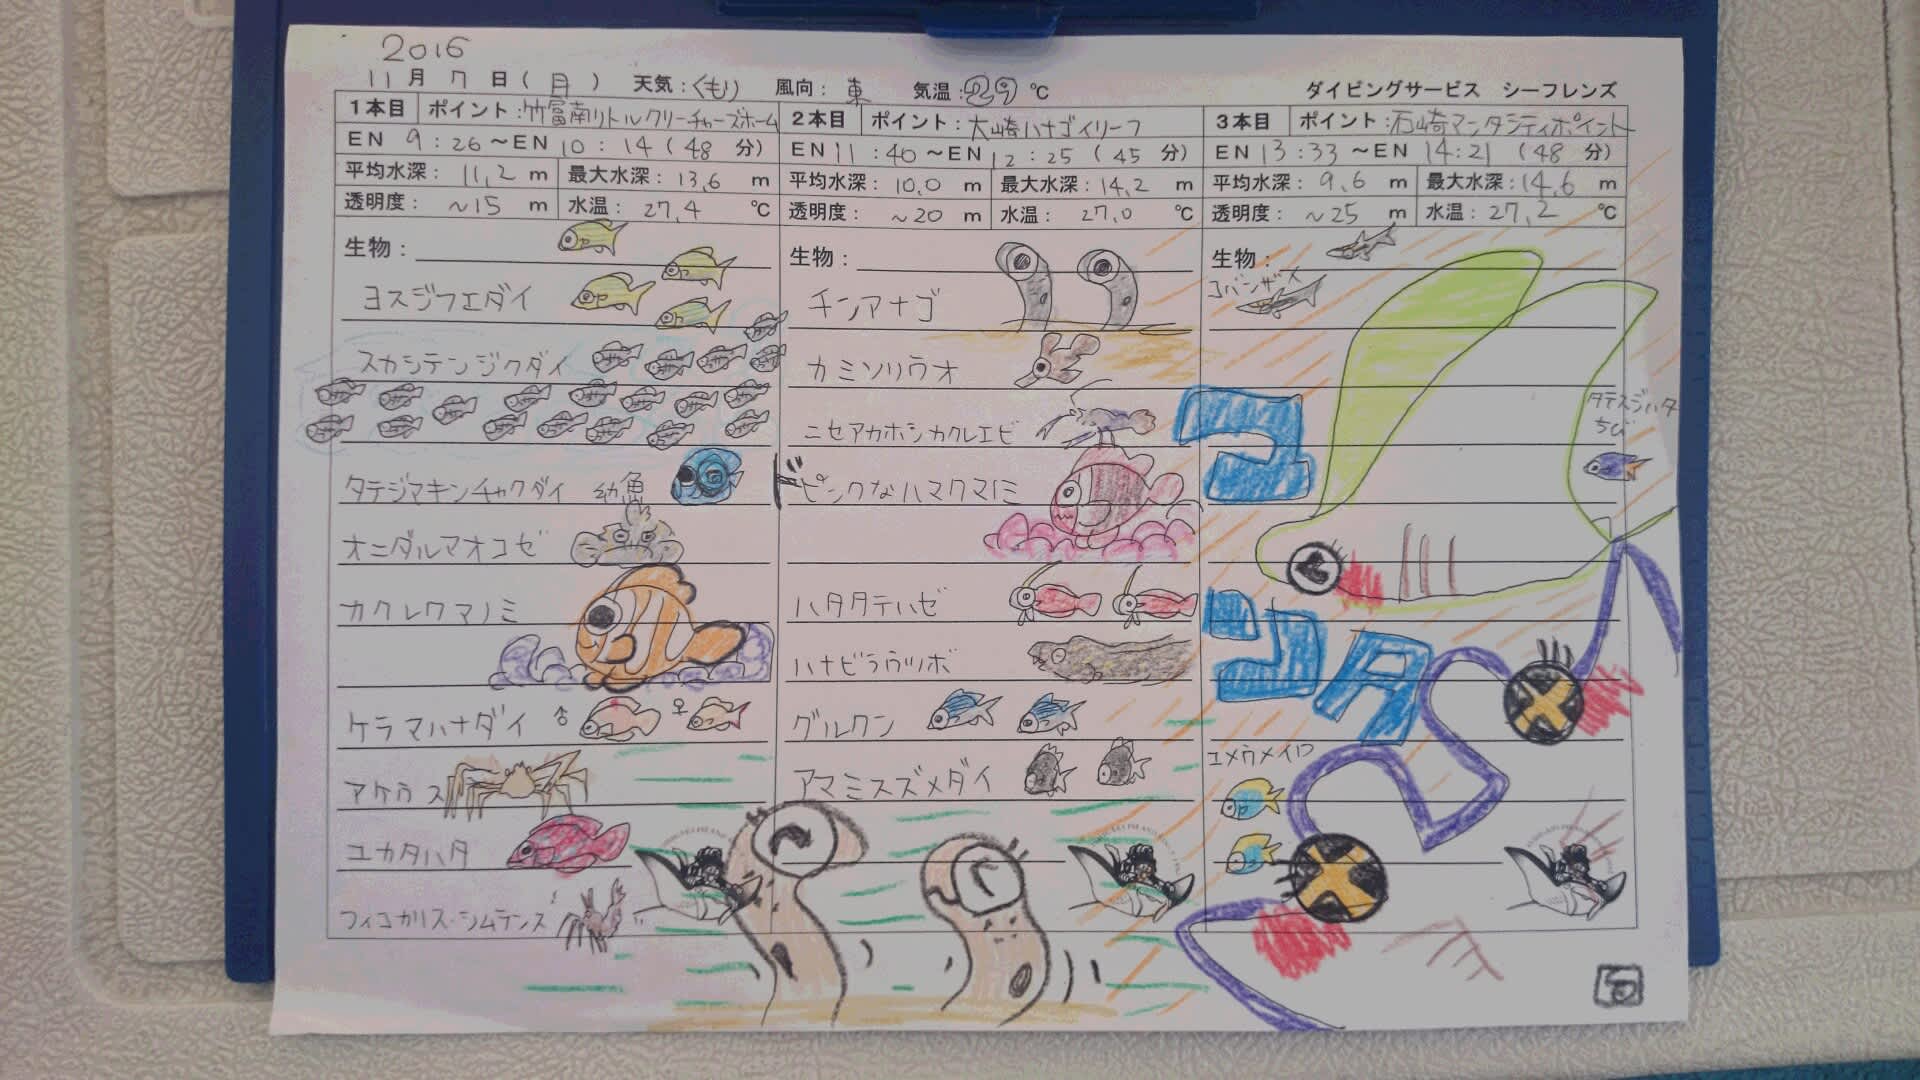 2016
11月 7日(月) 天気:くもり 風向:東 気温:29℃ ダイビングサービス シーフレンズ
1本目 ポイント:竹富南リトルクリーチャーズホーム
EN 9:26~EN 10:14(48分)
平均水深:11,2m 最大水深:13,6m
透明度:~15m 水温:27,4℃
生物:
ヨスジフエダイ
スカシテンジクダイ
タテジマキンチャクダイ 幼魚
オニダルマオコゼ
カクレクマノミ
ケラマハナダイ ♂ ♀
アケウス
ユカタハタ
フィコカリス・シムランス
2本目 ポイント:大崎ハナゴイリーフ
EN 11:40~EN 12:25(45分)
平均水深:10,0m 最大水深:14,2m
透明度:~20m 水温:27,0℃
生物:
チンアナゴ
カミソリウオ
ニセアカホシカクレエビ
ピンクなハマクマノミ
ハタタテハゼ
ハナビラウツボ
グルクン
アマミスズメダイ
3本目 ポイント:石崎マンタシティポイント
EN 13:33~EN 14:21(48分)
平均水深:9,6m 最大水深:14,6m
透明度:~25m 水温:27,2℃
生物:
コバンザメ
タテスジハタ
ちび
ユメウメイロ
石